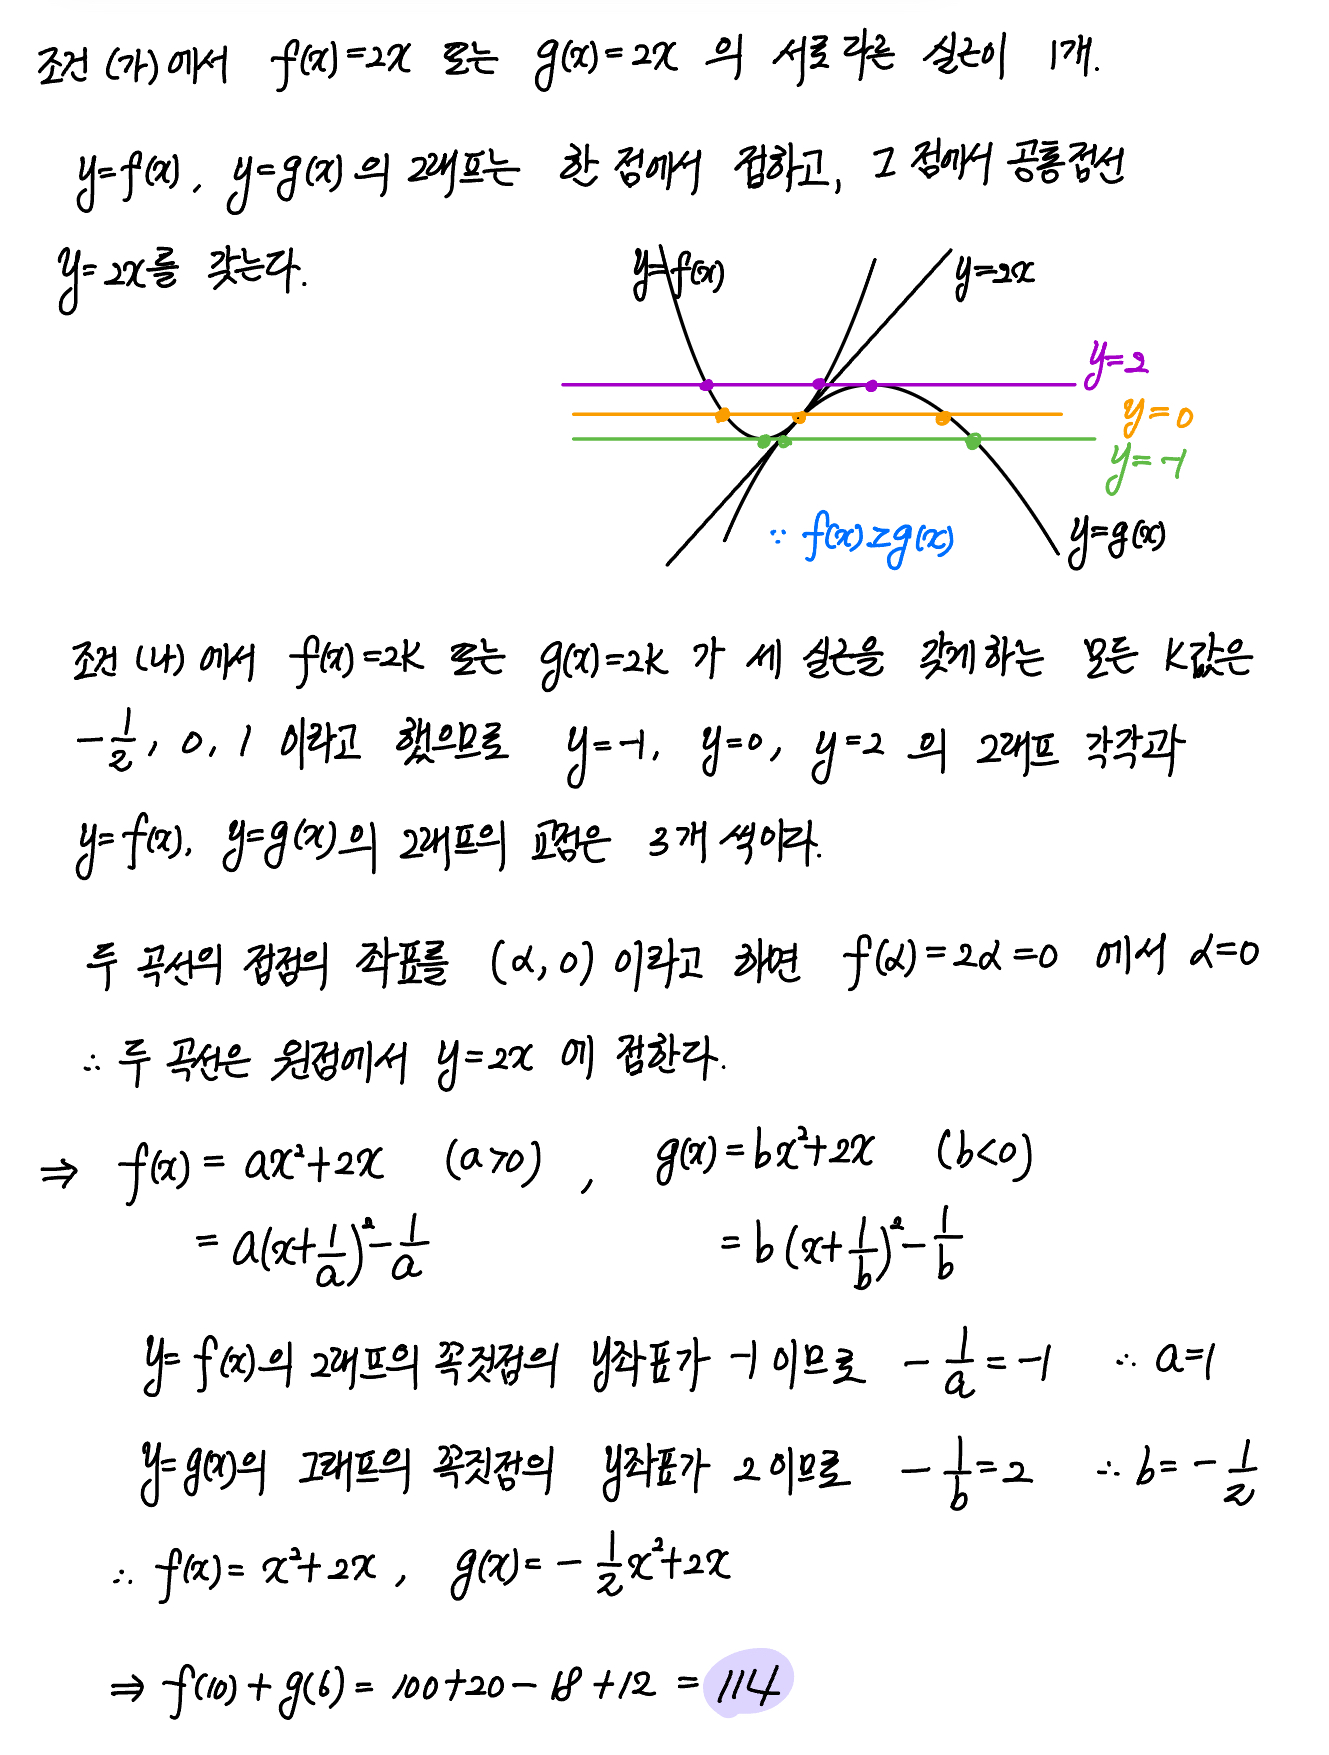 조건 (가)에서 f(x)=2x 또는 g(x)=2x 의 서로 다른 실근이 1개.
y=f(x), y=g(x)의 그래프는 한 점에서 접하고, 그 점에서 공통접선
y=2x를 갖는다.
y=f(x) y=2x
y=2
y=0
y=-1
∵ f(x)≥g(x) y=g(x)
조건 (나)에서 f(x)=2k 또는 g(x)=2k 가 세 실근을 갖게하는 모든 k값은
-1/2, 0, 1 이라고 했으므로 y=-1, y=0, y=2 의 그래프 각각과
y=f(x), y=g(x)의 그래프의 교점은 3개씩이다.
두 곡선의 접점의 좌표를 (α, 0) 이라고 하면 f(α)=2α=0 에서 α=0
∴ 두 곡선은 원점에서 y=2x 에 접한다.
⇒ f(x) = ax²+2x (a>0) , g(x)=bx²+2x (b<0)
= a(x+1/a)²-1/a = b(x+1/b)²-1/b
y=f(x)의 그래프의 꼭짓점의 y좌표가 -1 이므로 -1/a=-1 ∴ a=1
y=g(x)의 그래프의 꼭짓점의 y좌표가 2 이므로 -1/b=2 ∴ b=-1/2
∴ f(x)= x²+2x , g(x)= -1/2x²+2x
⇒ f(10)+g(6)= 100+20-18+12 = 114